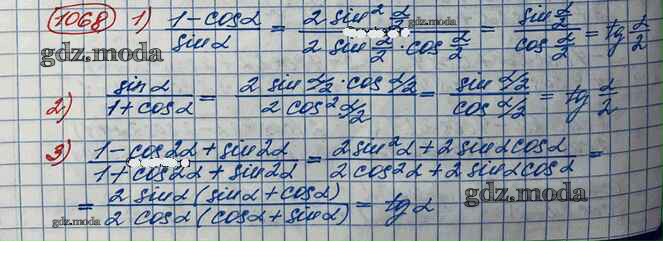 1068 1) (1-cosα)/(sinα) = (2 sin² α/2)/(2 sin α/2 · cos α/2) = (sin α/2)/(cos α/2) = tg α/2
gdz.moda
gdz.moda
2) (sinα)/(1+cosα) = (2 sin α/2 · cos α/2)/(2 cos² α/2) = (sin α/2)/(cos α/2) = tg α/2
3) (1-cos2α+sin2α)/(1+cos2α+sin2α) = (2sin²α+2sinαcosα)/(2cos²α+2sinαcosα) =
= (2 sinα(sinα+cosα))/(2 cosα(cosα+sinα)) = tgα
gdz.moda
gdz.moda